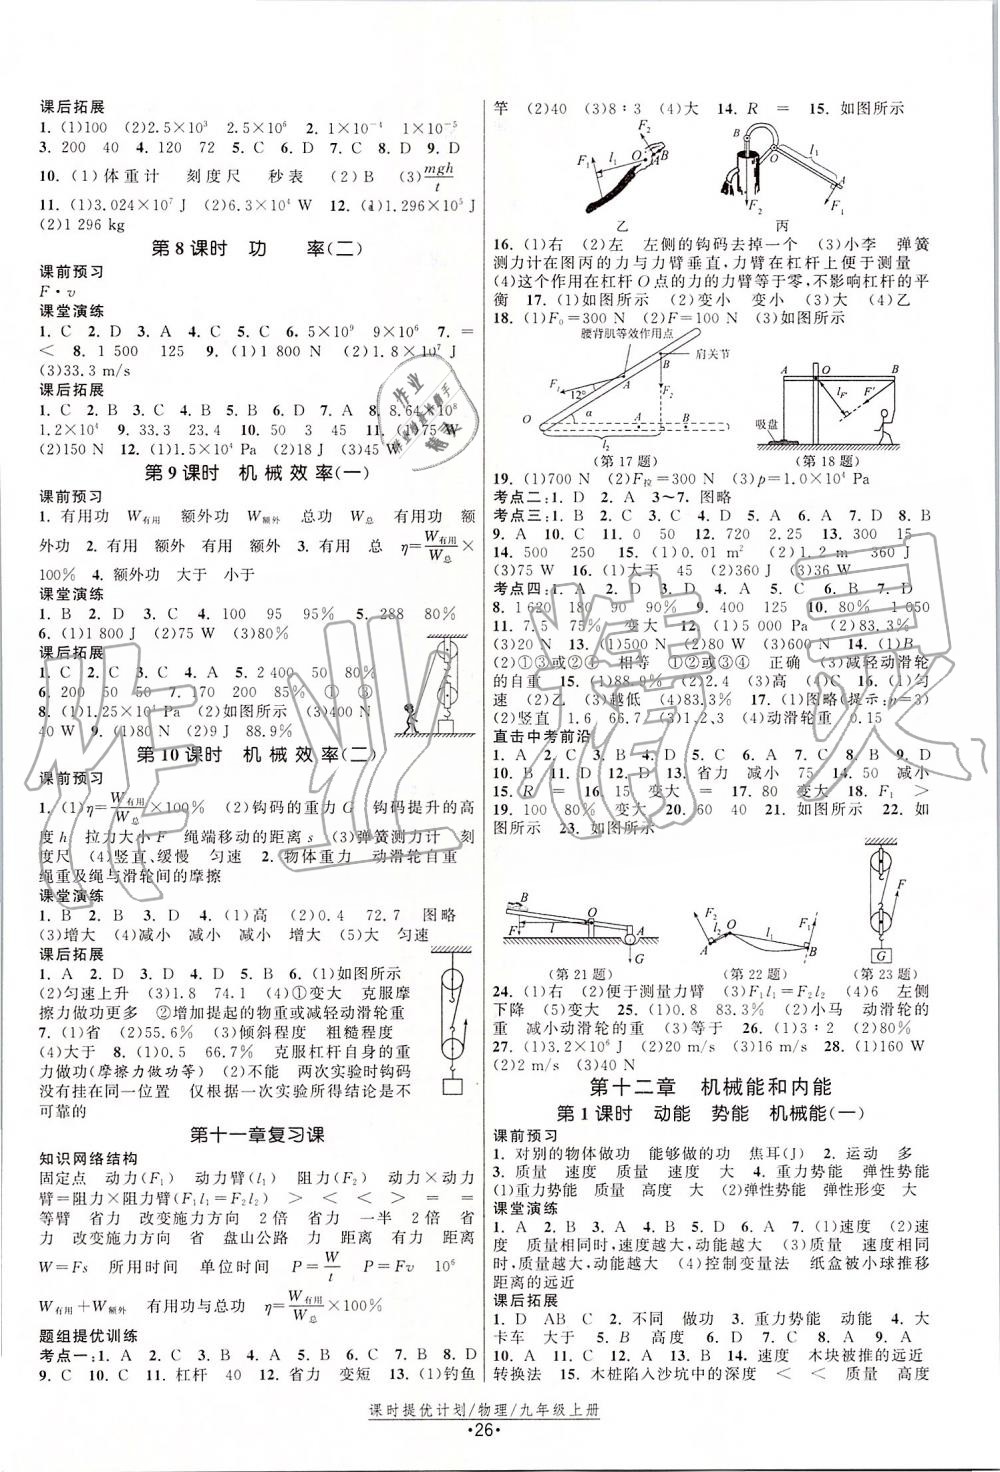 课后拓展
1. (1)100 (2)2.5×10³ 2.5×10⁶ 2. 1×10⁻⁴ 1×10⁻⁵
3. 200 40 4. 120 72 5. C 6. D 7. C 8. D 9. D
10. (1)体重计 刻度尺 秒表 (2)B (3)mgh/t
11. (1)3.024×10⁷ J (2)6.3×10⁴ W 12. (1)1.296×10⁵ J
(2)1 296 kg
第8课时 功 率(二)
课前预习
F·v
课堂演练
1. C 2. D 3. A 4. C 5. C 6. 5×10⁹ 9×10⁶ 7. =
< 8. 1 500 125 9. (1)1 800 N (2)1.8×10⁷ J
(3)33.3 m/s
课后拓展
1. C 2. B 3. C 4. C 5. B 6. D 7. A 8. 8.64×10⁸
1.2×10⁴ 9. 33.3 23.4 10. 50 3 45 11. (1)5 m/s
(2)150 N 12. (1)1.5×10⁴ Pa (2)150 N
第9课时 机械效率(一)
课前预习
1. 有用功 W有用 额外功 W额外 总功 W总 有用功 额
外功 2. 有用 额外 有用 额外 3. 有用 总 η=W有用/W总×
100% 4. 额外功 大于 小于
课堂演练
1. B 2. D 3. C 4. 100 95 95% 5. 288 80%
6. (1)1 800 J (2)75 W (3)80%
课后拓展
1. C 2. C 3. C 4. A 5. 2 400 50 80%
6. 200 50 50 7. 170 200 85% ① ③
8. (1)1.25×10⁴ Pa (2)如图所示 (3)400 N
40 W 9. (1)80 N (2)9 J 88.9%
第10课时 机械效率(二)
课前预习
1. (1)η=W有用/W总×100% (2)钩码的重力G 钩码提升的高
度h 拉力大小F 绳端移动的距离s (3)弹簧测力计 刻
度尺 (4)竖直、缓慢 匀速 2. 物体重力 动滑轮自重
绳重及绳与滑轮间的摩擦
课堂演练
1. B 2. B 3. D 4. (1)高 (2)0.4 72.7 图略
(3)增大 (4)减小 减小 增大 (5)大 匀速
课后拓展
1. A 2. D 3. B 4. C 5. D 6. (1)如图所示
(2)匀速上升 (3)1.8 74.1 (4)①变大 克服摩
擦力做功更多 ②增加提起的物重或减轻动滑轮重
7. (1)省 (2)55.6% (3)倾斜程度 粗糙程度
(4)大于 8. (1)0.5 66.7% 克服杠杆自身的重
力做功(摩擦力做功等) (2)不能 两次实验时钩码
没有挂在同一位置 仅根据一次实验得出结论是不
可靠的
第十一章复习课
知识网络结构
固定点 动力(F₁) 动力臂(l₁) 阻力(F₂) 动力×动力
臂=阻力×阻力臂(F₁l₁=F₂l₂) > < < > = =
等臂 省力 改变施力方向 2倍 省力 一半 2倍 省
力 改变施力方向 省力 盘山公路 力 距离 有力 距离
W=Fs 所用时间 单位时间 P=W/t P=Fv 10⁶
W有用+W额外 有用功与总功 η=W有用/W总×100%
题组提优训练
考点一:1. A 2. C 3. C 4. A 5. C 6. A 7. D 8. D
9. C 10. C 11. 杠杆 40 12. 省力 变短 13. (1)钓鱼
竿 (2)40 (3)8∶3 (4)大 14. R = 15. 如图所示
F₂ A O l₁ F₁ 乙
B O l₁ A F₁ F₂ 丙
16. (1)右 (2)左 左侧的钩码去掉一个 (3)小李 弹簧
测力计在图丙的力与力臂垂直,力臂在杠杆上便于测量
(4)这个作用在杠杆O点的力的力臂等于零,不影响杠杆的平
衡 17. (1)如图所示 (2)变小 变小 (3)大 (4)乙
18. (1)F₀=300 N (2)F=100 N (3)如图所示
腰背肌等效作用点 肩关节 B F₁ 12° A F₂ O α l₂
(第17题)
A O B l_F F′ F 吸盘
(第18题)
19. (1)700 N (2)F拉=100 N (3)p=1.0×10⁴ Pa
考点二:1. D 2. A 3~7. 图略
考点三:1. B 2. C 3. C 4. D 5. A 6. A 7. D 8. B
9. A 10. C 11. 0 50 12. 720 2.25 13. 300 15
14. 500 250 15. (1)0.01 m² (2)1.2 m 360 J
(3)75 W 16. (1)大于 45 (2)360 J (3)36 W
考点四:1. C 2. A 3. D 4. A 5. C 6. B 7. C
8. 1 620 180 90 90% 9. 400 125 10. 80% 1 050
11. 7.5 75% 变大 12. (1)5 000 Pa (2)83.3%
(3)20 N 13. (1)500 N (2)80 W (3)600 N 14. (1)B
(2)①③或②④ 相等 ①②或③④ 正确 (3)减轻动滑轮
的自重 15. (1)88.9% (2)2.4 (3)高 (4)C 16. (1)匀
速 (2)乙 (3)越低 (4)83.3% 17. (1)图略(提示:n=3)
(2)竖直 1.6 66.7 (3)1、2、3 (4)动滑轮重 0.15
直击中考前沿
1. A 2. C 3. B 4. C 5. A 6. D 7. C 8. B 9. D
10. B 11. D 12. D 13. 省力 减小 75 14. 50 减小
15. R = 16. 15 变大 = 17. 80 变大 18. F₁ >
19. 100 80% 变大 20. 60 40 21. 如图所示 22. 如
图所示 23. 如图所示
B O A l F G
(第21题)
F₂ l₂ O A l₁ B F₁
(第22题)
F G
(第23题)
24. (1)右 (2)便于测量力臂 (3)F₁l₁=F₂l₂ (4)6 左侧
下降 (5)大 25. (1)0.8 83.3% (2)小马 动滑轮的
重 减小动滑轮的重 (3)等于 26. (1)3∶2 (2)80%
27. (1)3.2×10⁶ J (2)20 m/s (3)10 m/s 28. (1)160 W
(2)2 m/s (3)40 N
第十二章 机械能和内能
第1课时 动能 势能 机械能(一)
课前预习
1. 对别的物体做功 能够做的功 焦耳(J) 2. 运动 多
3. 质量 速度 质量 速度 大 4. 重力势能 弹性势能
(1)重力势能 质量 高度 大 (2)弹性势能 弹性形变 大
课堂演练
1. A 2. B 3. A 4. C 5. A 6. A 7. (1)速度 (2)速度
质量相同时,速度越大,动能越大 (3)质量 速度相同
时,质量越大,动能越大 (4)控制变量法 纸盒被小球推移
距离的远近
课后拓展
1. D AB C 2. 不同 做功 3. 重力势能 动能 4. 大
卡车 大于 5. B 高度 6. B 7. C 8. A 9. A
10. A 11. C 12. A 13. B 14. 速度 木块被推的远近
转换法 15. 木桩陷入沙坑中的深度 等于 大于 < =
课时提优计划/物理/九年级上册
·26·
作业精灵